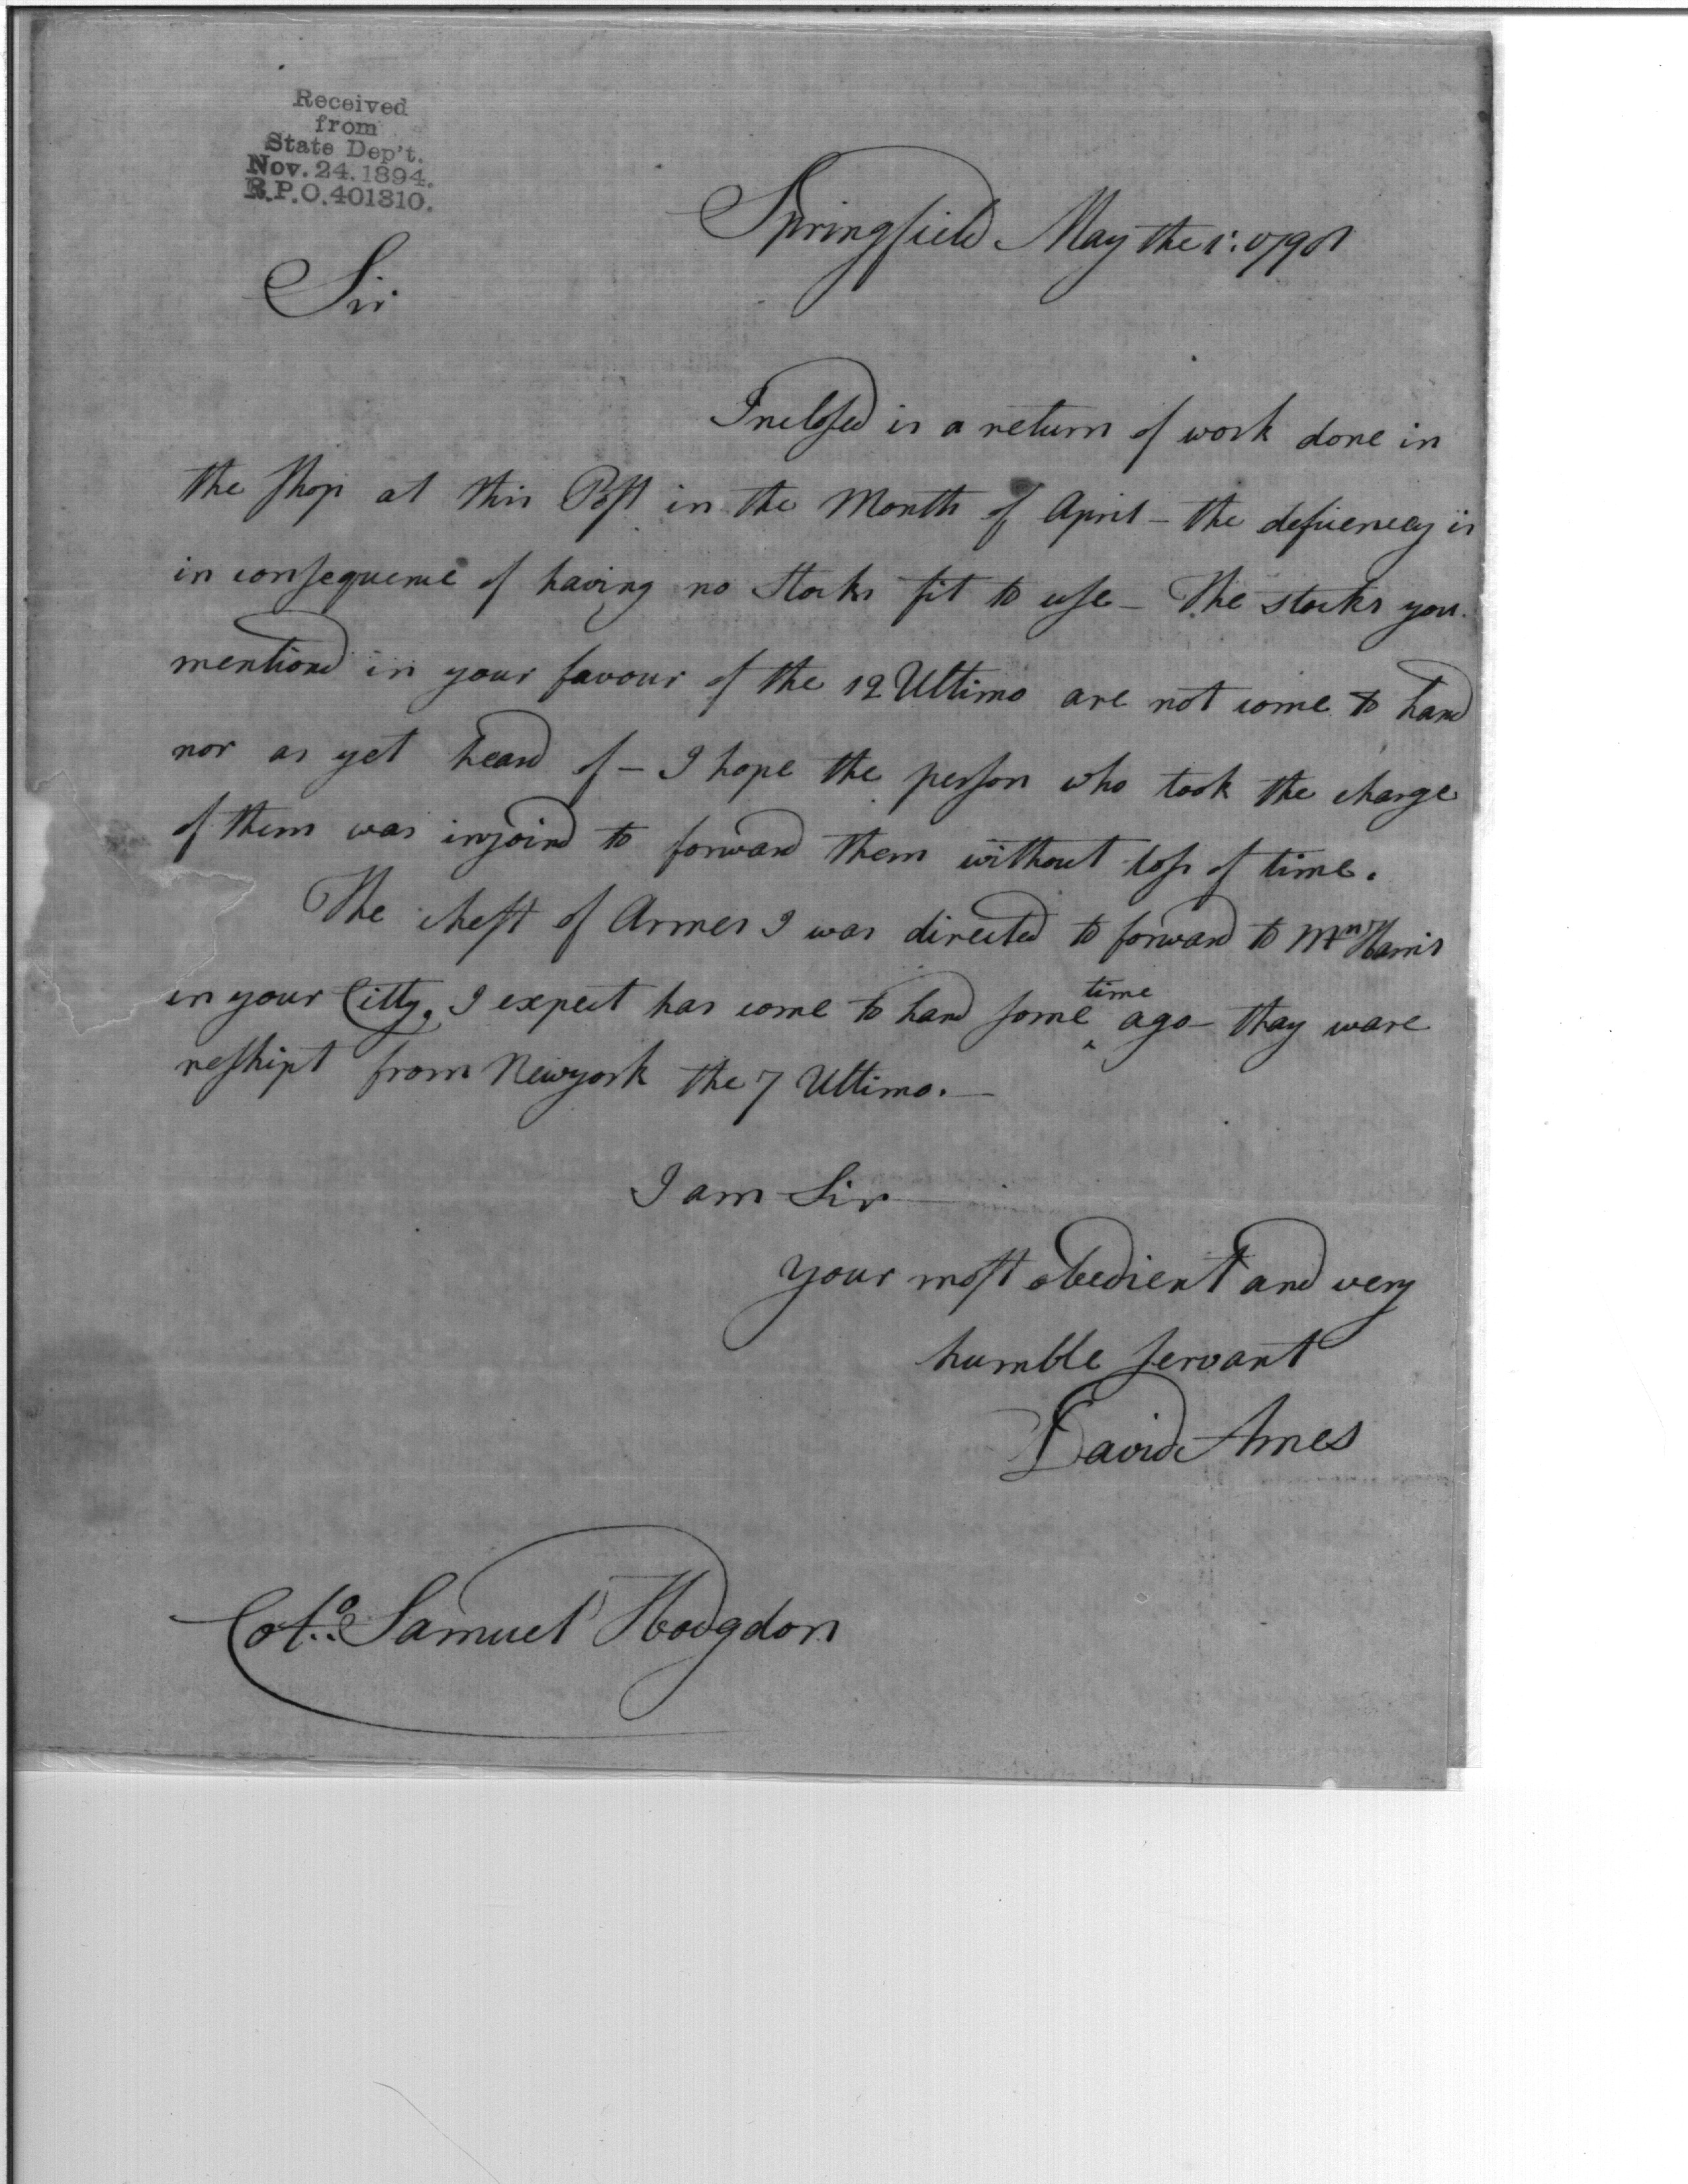 Received
from
State Dep't.
Nov. 24. 1894.
R.P.O. 401310.
Springfield May the 1: 1798
Sir
Inclosed is a return of work done in
the Shop at this Post in the Month of April – the deficiency is
in consequence of having no Stocks fit to use – The stocks you
mentiond in your favour of the 12 Ultimo are not come to hand
nor as yet heard of – I hope the person who took the charge
of them was injoind to forward them without loss of time.
The chest of Armes I was directed to forward to Harris
in your Citty, I expect has come to hand some ^time ago – thay ware
reshipt from Newyork the 7 Ultimo. —
I am Sir
your most obedient and very
humble servant
David Ames
Colo. Samuel Hodgdon